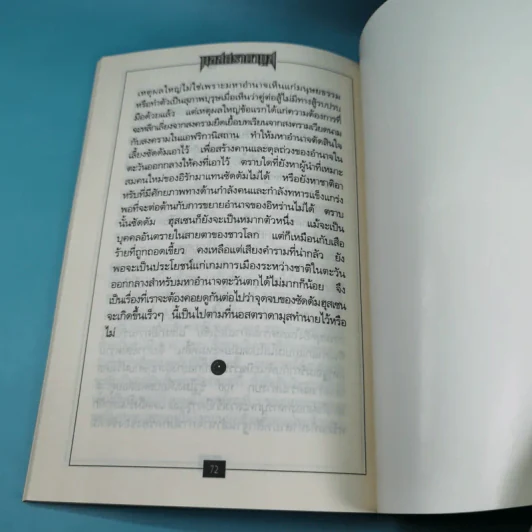 เหตุผลใหญ่ไม่ใช่เพราะมหาอำนาจเห็นแก่มนุษยธรรม
หรือทำตัวเป็นสุภาพบุรุษเมื่อเห็นว่าคู่ต่อสู้ไม่มีทางสู้รบปรบ
มือด้วยแล้ว แต่เหตุผลใหญ่ข้อแรกได้แก่ความต้องการที่
จะหลีกเลี่ยงจากสงครามยืดเยื้อบทเรียนจากสงครามเวียตนาม
กับสงครามในแอฟริกานิสถาน ทำให้มหาอำนาจตัดสินใจ
เลี้ยงซัดดัมเอาไว้ เพื่อสร้างคานและดุลถ่วงของอำนาจใน
ตะวันออกกลางให้คงที่เอาไว้ ตราบใดที่ยังหาผู้นำที่เหมาะ
สมคนใหม่ของอิรักมาแทนซัดดัมไม่ได้ หรือยังหาชาติอา
หรับที่มีศักยภาพทางด้านกำลังคนและกำลังทหารแข็งแกร่ง
พอที่จะต่อต้านกับการขยายอำนาจของอิหร่านไม่ได้ ตราบ
นั้นซัดดัม ฮุสเซนก็ยังจะเป็นหมากตัวหนึ่ง แม้จะเป็น
บุคคลอันตรายในสายตาของชาวโลก แต่ก็เหมือนกับเสือ
ร้ายที่ถูกถอดเขี้ยว คงเหลือแต่เสียงคำรามที่น่ากลัว ยัง
พอจะเป็นประโยชน์แก่เกมการเมืองระหว่างชาติในตะวัน
ออกกลางสำหรับมหาอำนาจตะวันตกได้ไม่มากก็น้อย จึง
เป็นเรื่องที่เราจะต้องคอยดูกันต่อไปว่าจุดจบของซัดดัมฮุสเซน
จะเกิดขึ้นเร็วๆ นี้เป็นไปตามที่นอสตราดามุสทำนายไว้หรือ
ไม่
72